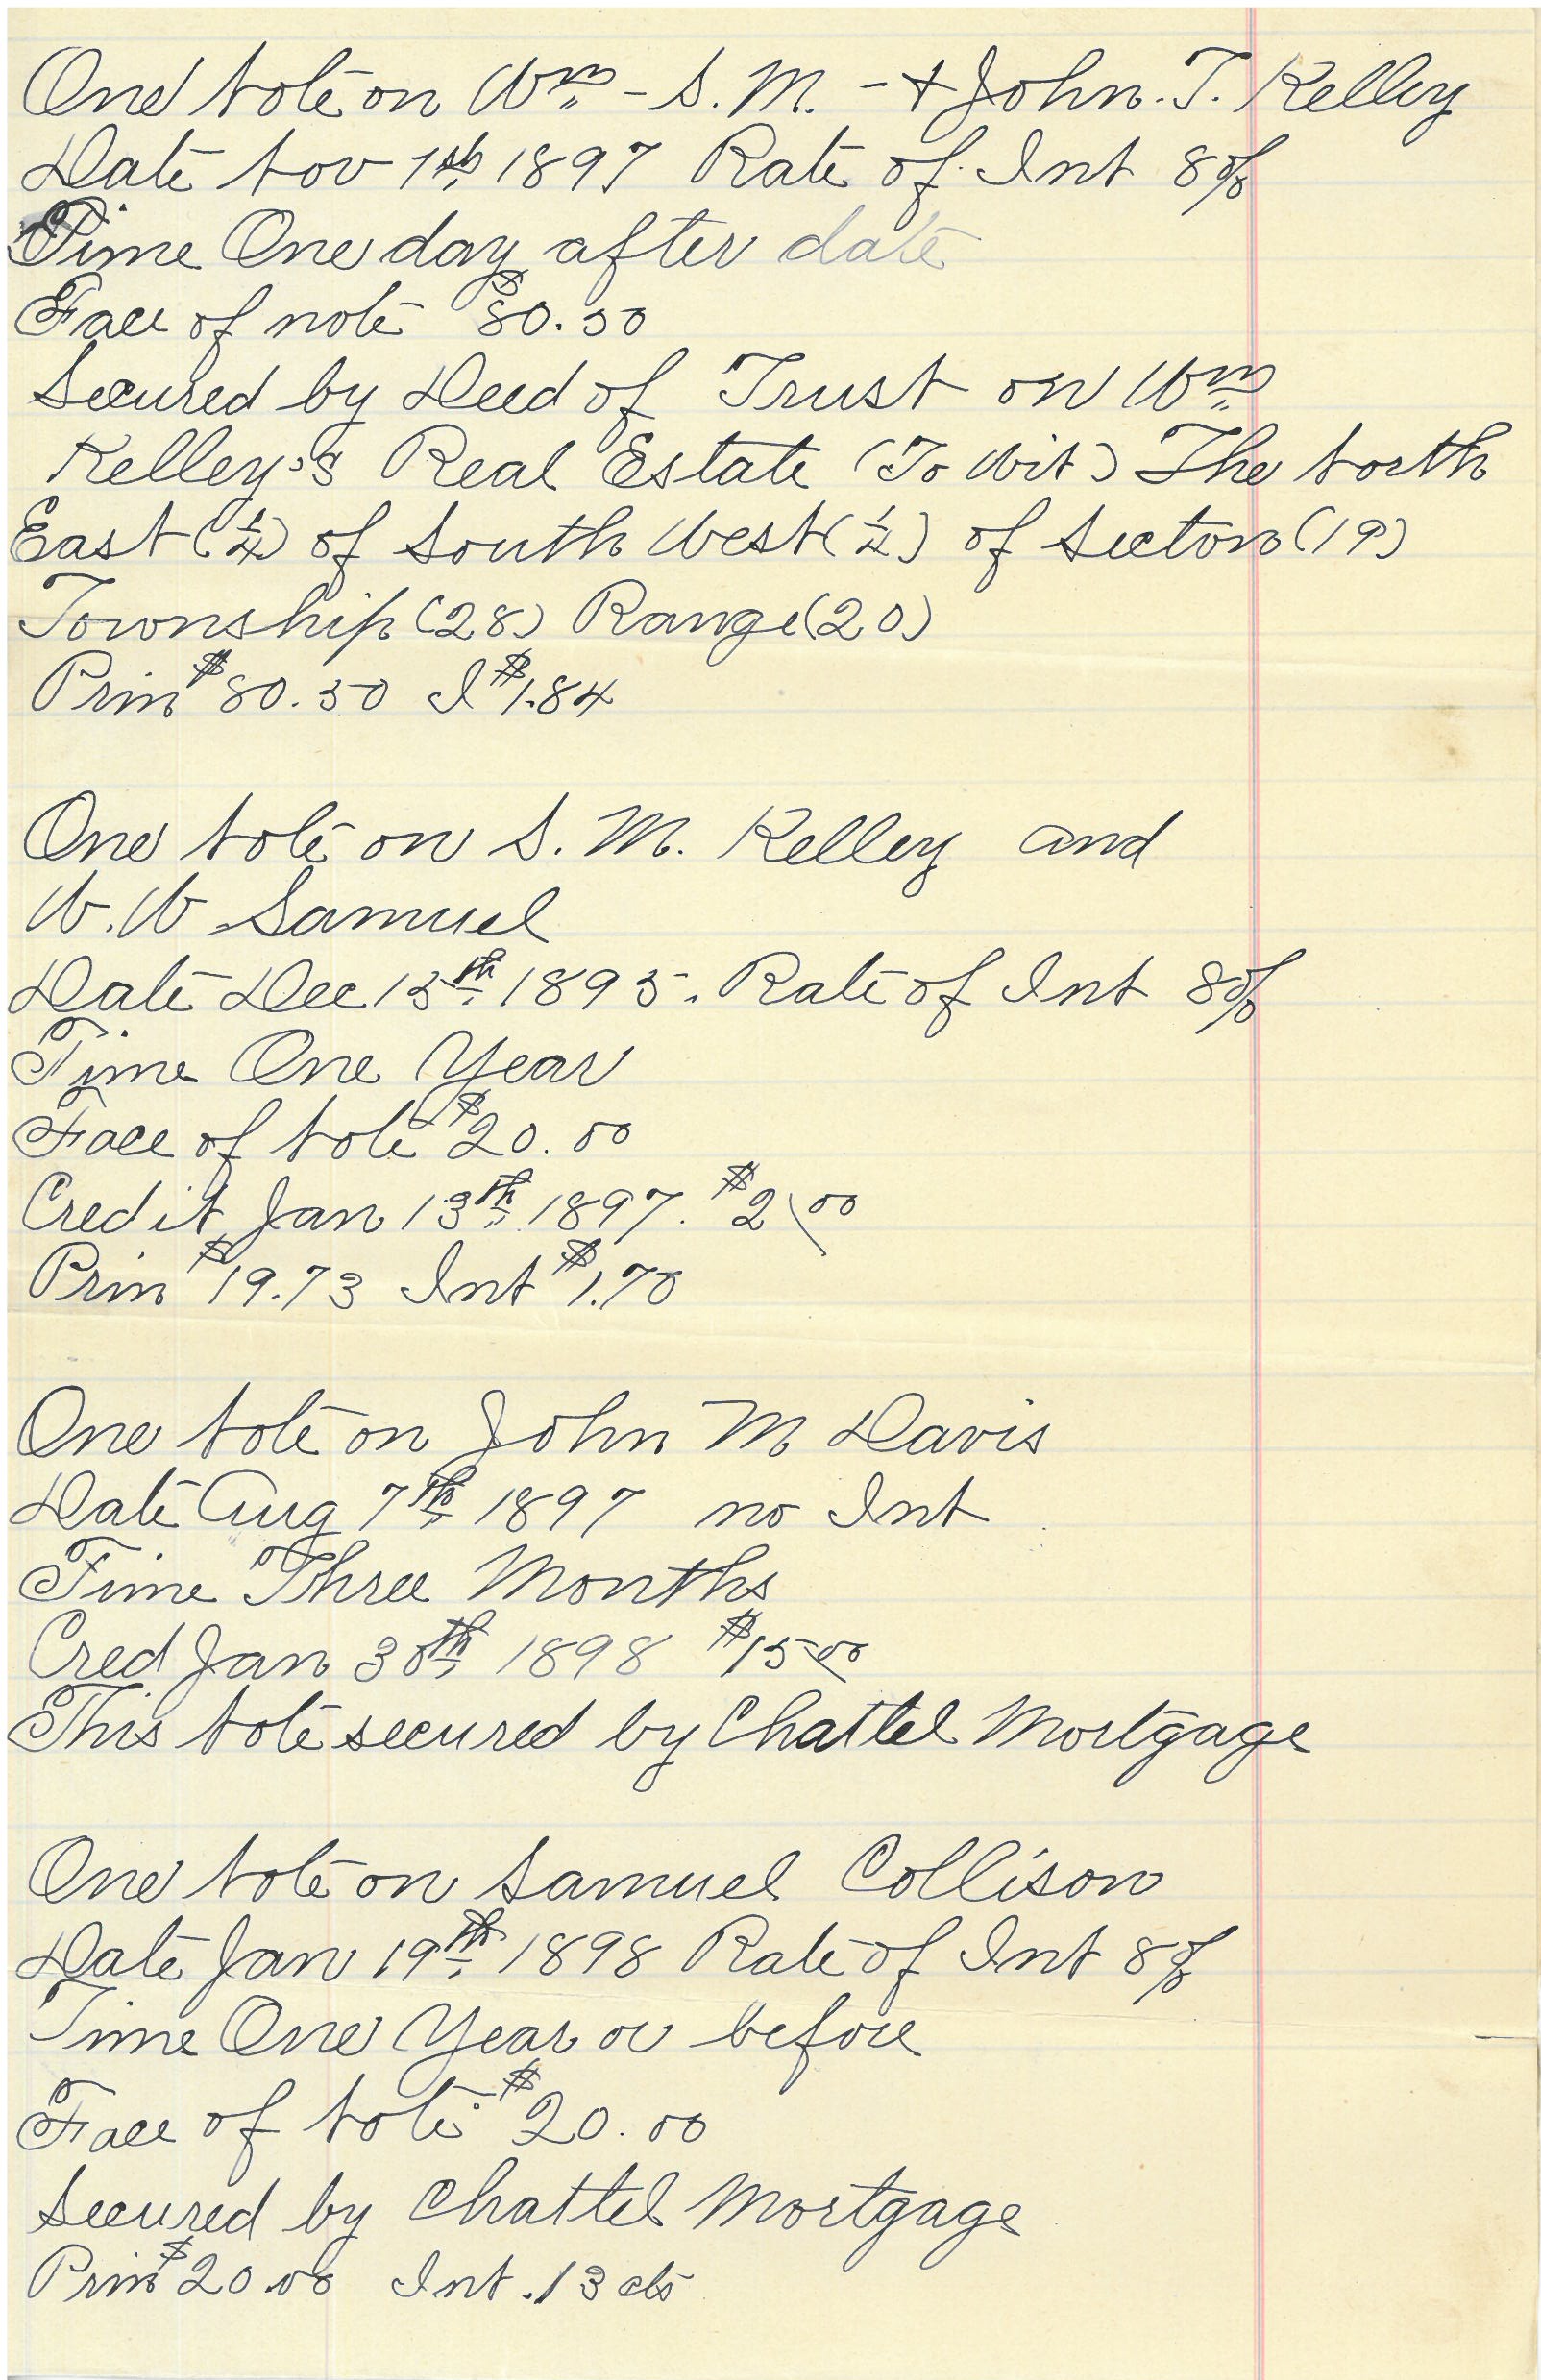 One Note on Wm - S. M. - & John. T. Kelley
Date Nov 1st, 1897 Rate of Int 8%
Time One day after date
Face of note $80.50
Secured by Deed of Trust on Wm
Kelley's Real Estate (To Wit) The North
East (1/4) of South West (1/4) of Secton (19)
Township (28) Range (20)
Prin $80.50 I $1.84
One Note on S. M. Kelley and
W. W Samuel
Date Dec 15th 1895. Rate of Int 8%
Time One Year
Face of Note $20.00
Credit Jan 13th, 1897. $2.00
Prin $19.73 Int $1.70
One Note on John M Davis
Date Aug 7th, 1897 no Int
Time Three Months
Cred Jan 30th, 1898 $15.00
This Note secured by Chattel Mortgage
One Note on Samuel Collison
Date Jan 19th, 1898 Rate of Int 8%
Time One Year or before
Face of Note $20.00
Secured by Chattel Mortgage
Prin $20.00 Int .13 cts